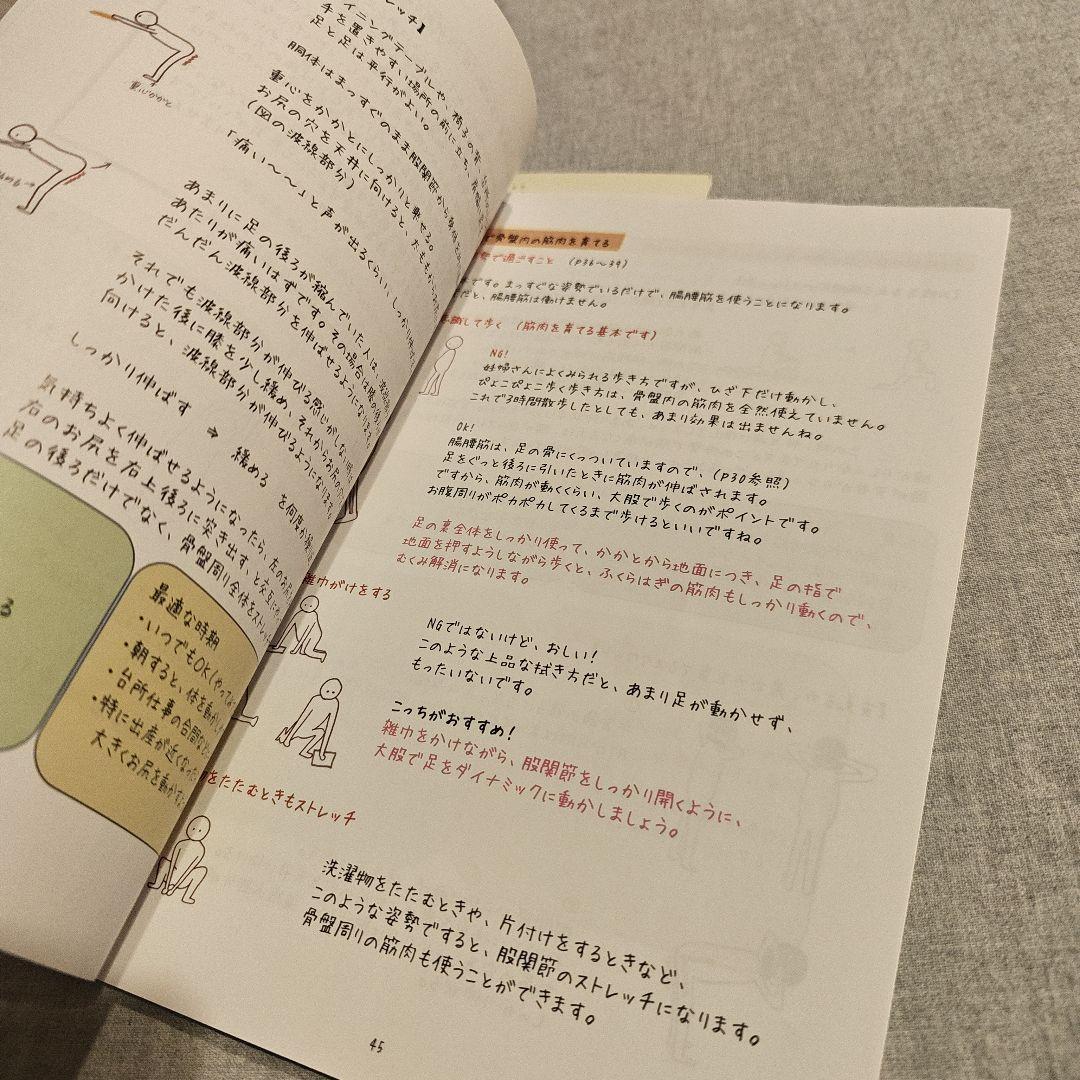 レッチ】
イニングテーブルや、椅子の背
手を置きやすい場所の前に立ち、肩幅
足と足は平行がよい。
胴体はまっすぐのまま股関節から
重心をかかとにしっかりと乗せる。
お尻の穴を天井に向けると、
(図の波線部分)
「痛い〜〜」と声が出るくらい、しっかり
あまりに足の後ろが縮んでいた人は、
あたりが痛いはずです。その場合は膝
だんだん波線部分を伸ばせるようになります。
それでも波線部分が伸びる感じがしない
かけた後に膝を少し緩め、それからお尻の
向けると、波線部分が伸びるようになります。
しっかり伸ばす ⇒ 緩める を何度か
気持ちよく伸ばせるようになったら、左のお尻
右のお尻を右上後ろに突き出す、と交互に
足の後ろだけでなく、骨盤周り全体をストレッ
重心かかと
る
最適な時期
・いつでもOK(やって
・朝すると、体を動かし
・台所仕事の合間に
・特に出産が近くなった
大きくお尻を動かす
骨盤内の筋肉を育てる
勢で過ごすこと (p36〜39)
です。まっすぐな姿勢でいるだけで、腸腰筋を使うことになります。
だと、腸腰筋は働けません。
識して歩く (筋肉を育てる基本です)
NG!
妊婦さんによくみられる歩き方ですが、ひざ下だけ動かし、
ぴょこぴょこ歩く歩き方は、骨盤内の筋肉を全然使えていません。
これで3時間散歩したとしても、あまり効果は出ませんね。
OK!
腸腰筋は、足の骨にくっついていますので、(p30参照)
足をぐっと後ろに引いたときに筋肉が伸ばされます。
ですから、筋肉が動くくらい、大股で歩くのがポイントです。
お腹周りがポカポカしてくるまで歩けるといいですね。
足の裏全体をしっかり使って、かかとから地面につき、足の指で
地面を押すようしながら歩くと、ふくらはぎの筋肉もしっかり動くので、
むくみ解消になります。
雑巾がけをする
NGではないけど、おしい!
このような上品な拭き方だと、あまり足が動かせず、
もったいないです。
こっちがおすすめ!
雑巾をかけながら、股関節をしっかり開くように、
大股で足をダイナミックに動かしましょう。
をたたむときもストレッチ
洗濯物をたたむときや、片付けをするときなど、
このような姿勢ですると、股関節のストレッチになります。
骨盤周りの筋肉も使うことができます。
45